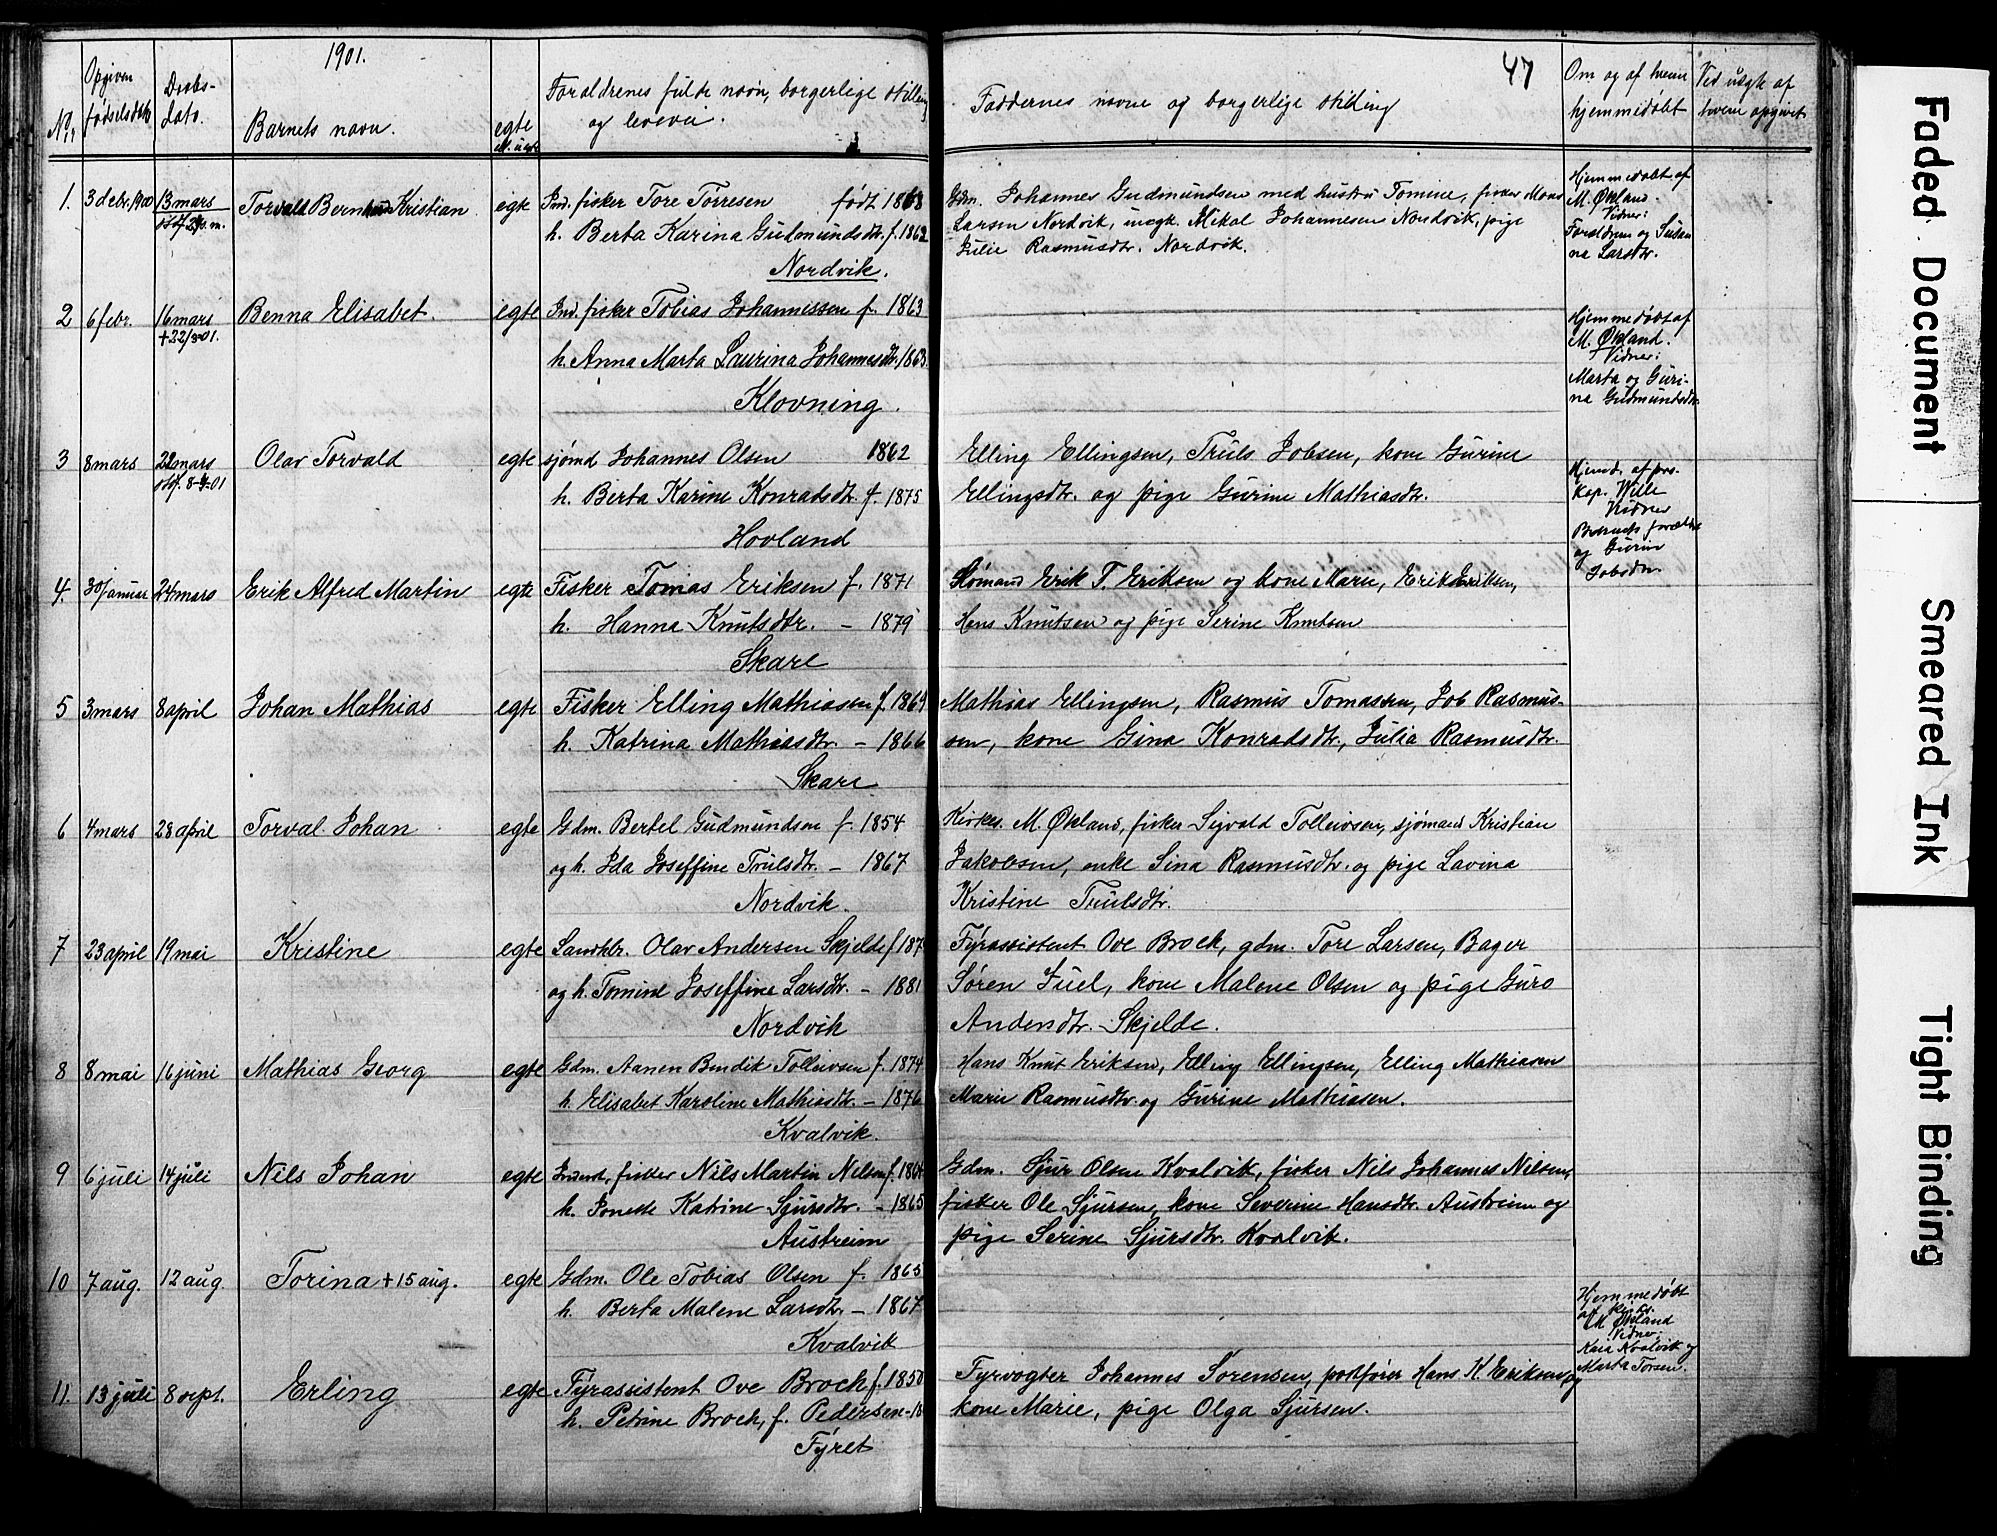 1901.
47
No.
Opgiven fødselsdato
Daabs-dato.
Barnets navn.
egte ell. uegte
Forældrenes fulde navn, borgerlige stilling og
Faddernes navne og borgerlige stilling
Om og af hvem hjemmedøbt
Ved uegte af hvem opgivet
1. 3 debr. 1900 13 mars
Torvald Bernhard Kristian
egte Ind. fisker Tore Torresen født 1868
h. Berta Karina Gudmundsdtr. f. 1862
Nordvik.
Gdm. Johannes Gudmundsen med hustru Tomine, fisker Mons
Larsen Nordvik, ungk. Mikal Johannesen Nordvik, pige
Julie Rasmusdtr. Nordvik.
Hjemmedøbt af
M. Økland.
Vidner:
Forældrene og Susan
na Larsdtr.
2 6 febr. 16 mars
+22/3 01.
Benna Elisabet.
egte Ind. fisker Tobias Johannessen f. 1863
h. Anna Marta Laurina Johannesdtr. 1863
Klovning.
Hjemmedøbt af
M. Økland.
Vidner:
Marta og Guri-
na Gudmundsdtr.
3 8 mars 22 mars
Olav Torvald
egte sjømd Johannes Olsen 1862
h. Berta Karine Konradsdtr. f. 1875
Hovland
Elling Ellingsen, Truls Jobsen, kone Gurine
Ellingsdtr. og pige Gurine Mathiasdtr.
Hjemd. af pers.
Kap. Wille
Vidner
Barnets forældre
og Gurin
Jobsdtr
4. 30 januar 24 mars Erik Alfred Martin
egte Fisker Tomas Eriksen f. 1871
h. Hanna Knutsdtr. - 1879
Skare
Sømand Erik T. Eriksen og kone Marie, Erik Eriksen,
Hans Knutsen og pige Serine Knutsen
5 3 mars 8 april Johan Mathias
egte Fisker Elling Mathiasen f. 1869
h. Katrina Mathiasdtr. - 1866
Skare
Mathias Ellingsen, Rasmus Tomassen, Job Rasmus-
sen, kone Gina Konradsdtr., Julia Rasmusdtr.
6 4 mars 28 april Torval Johan
egte Gdm. Bertel Gudmundsen f. 1854
og h. Ida Joseffine Trulsdtr. - 1867
Nordvik.
Kirkes. M. Økland, fisker Sigvald Tolleivsen, sjømand Kristian
Jakobsen, enke Sina Rasmusdtr. og pige Lavina
Kristine Trulsdtr.
7 23 april 19 mai Kristine
egte Landhdr. Olav Andersen Skjelde f 187
og h. Tomine Joseffine Larsdtr. - 1881
Nordvik
Fyrassistent Ove Brock, gdm. Tore Larsen, Bager
Søren Juel, kone Malene Olsen og pige Guro
Andersdtr. Skjelde.
8 8 mai 16 juni Mathias Georg
egte Gdm. Aanen Bendik Tolleivsen f. 1874
h. Elisabet Karoline Mathiasdtr. - 1876
Kvalvik.
Hans Knut Eriksen, Elling Ellingsen, Elling Mathiasen
Marie Rasmusdtr. og Gurine Mathiasen.
9 6 juli 14 juli Nils Johan
egte Inderst, fisker Nils Martin Nilsen f. 1864
h. Jonette Katrine Sjursdtr. - 1865
Austreim
Gdm. Sjur Olsen Kvalvik, fisker Nils Johannes Nilsen,
fisker Ole Sjursen, kone Severine Hansdtr. Austreim og
pige Serine Sjursdtr. Kvalvik.
10 7 aug. 12 aug. Torina +15 aug.
egte Gdm. Ole Tobias Olsen f. 1865
h. Berta Malene Larsdtr. - 1867
Kvalvik
Hjemmedøbt
af kirks.
M. Økland
Vidner:
Kaia Kvalvik og
Marta Torsen.
11. 13 juli 8 sept. Erling
egte Fyrassistent Ove Brock f. 1850
h. Petrine Brock, f. Pedersen - 18
Fyret
Fyrvogter Johannes Sørensen, postfører Hans K. Eriksen og
kone Marie, pige Olga Sjursen.
Faded Document
Smeared Ink
Tight Binding